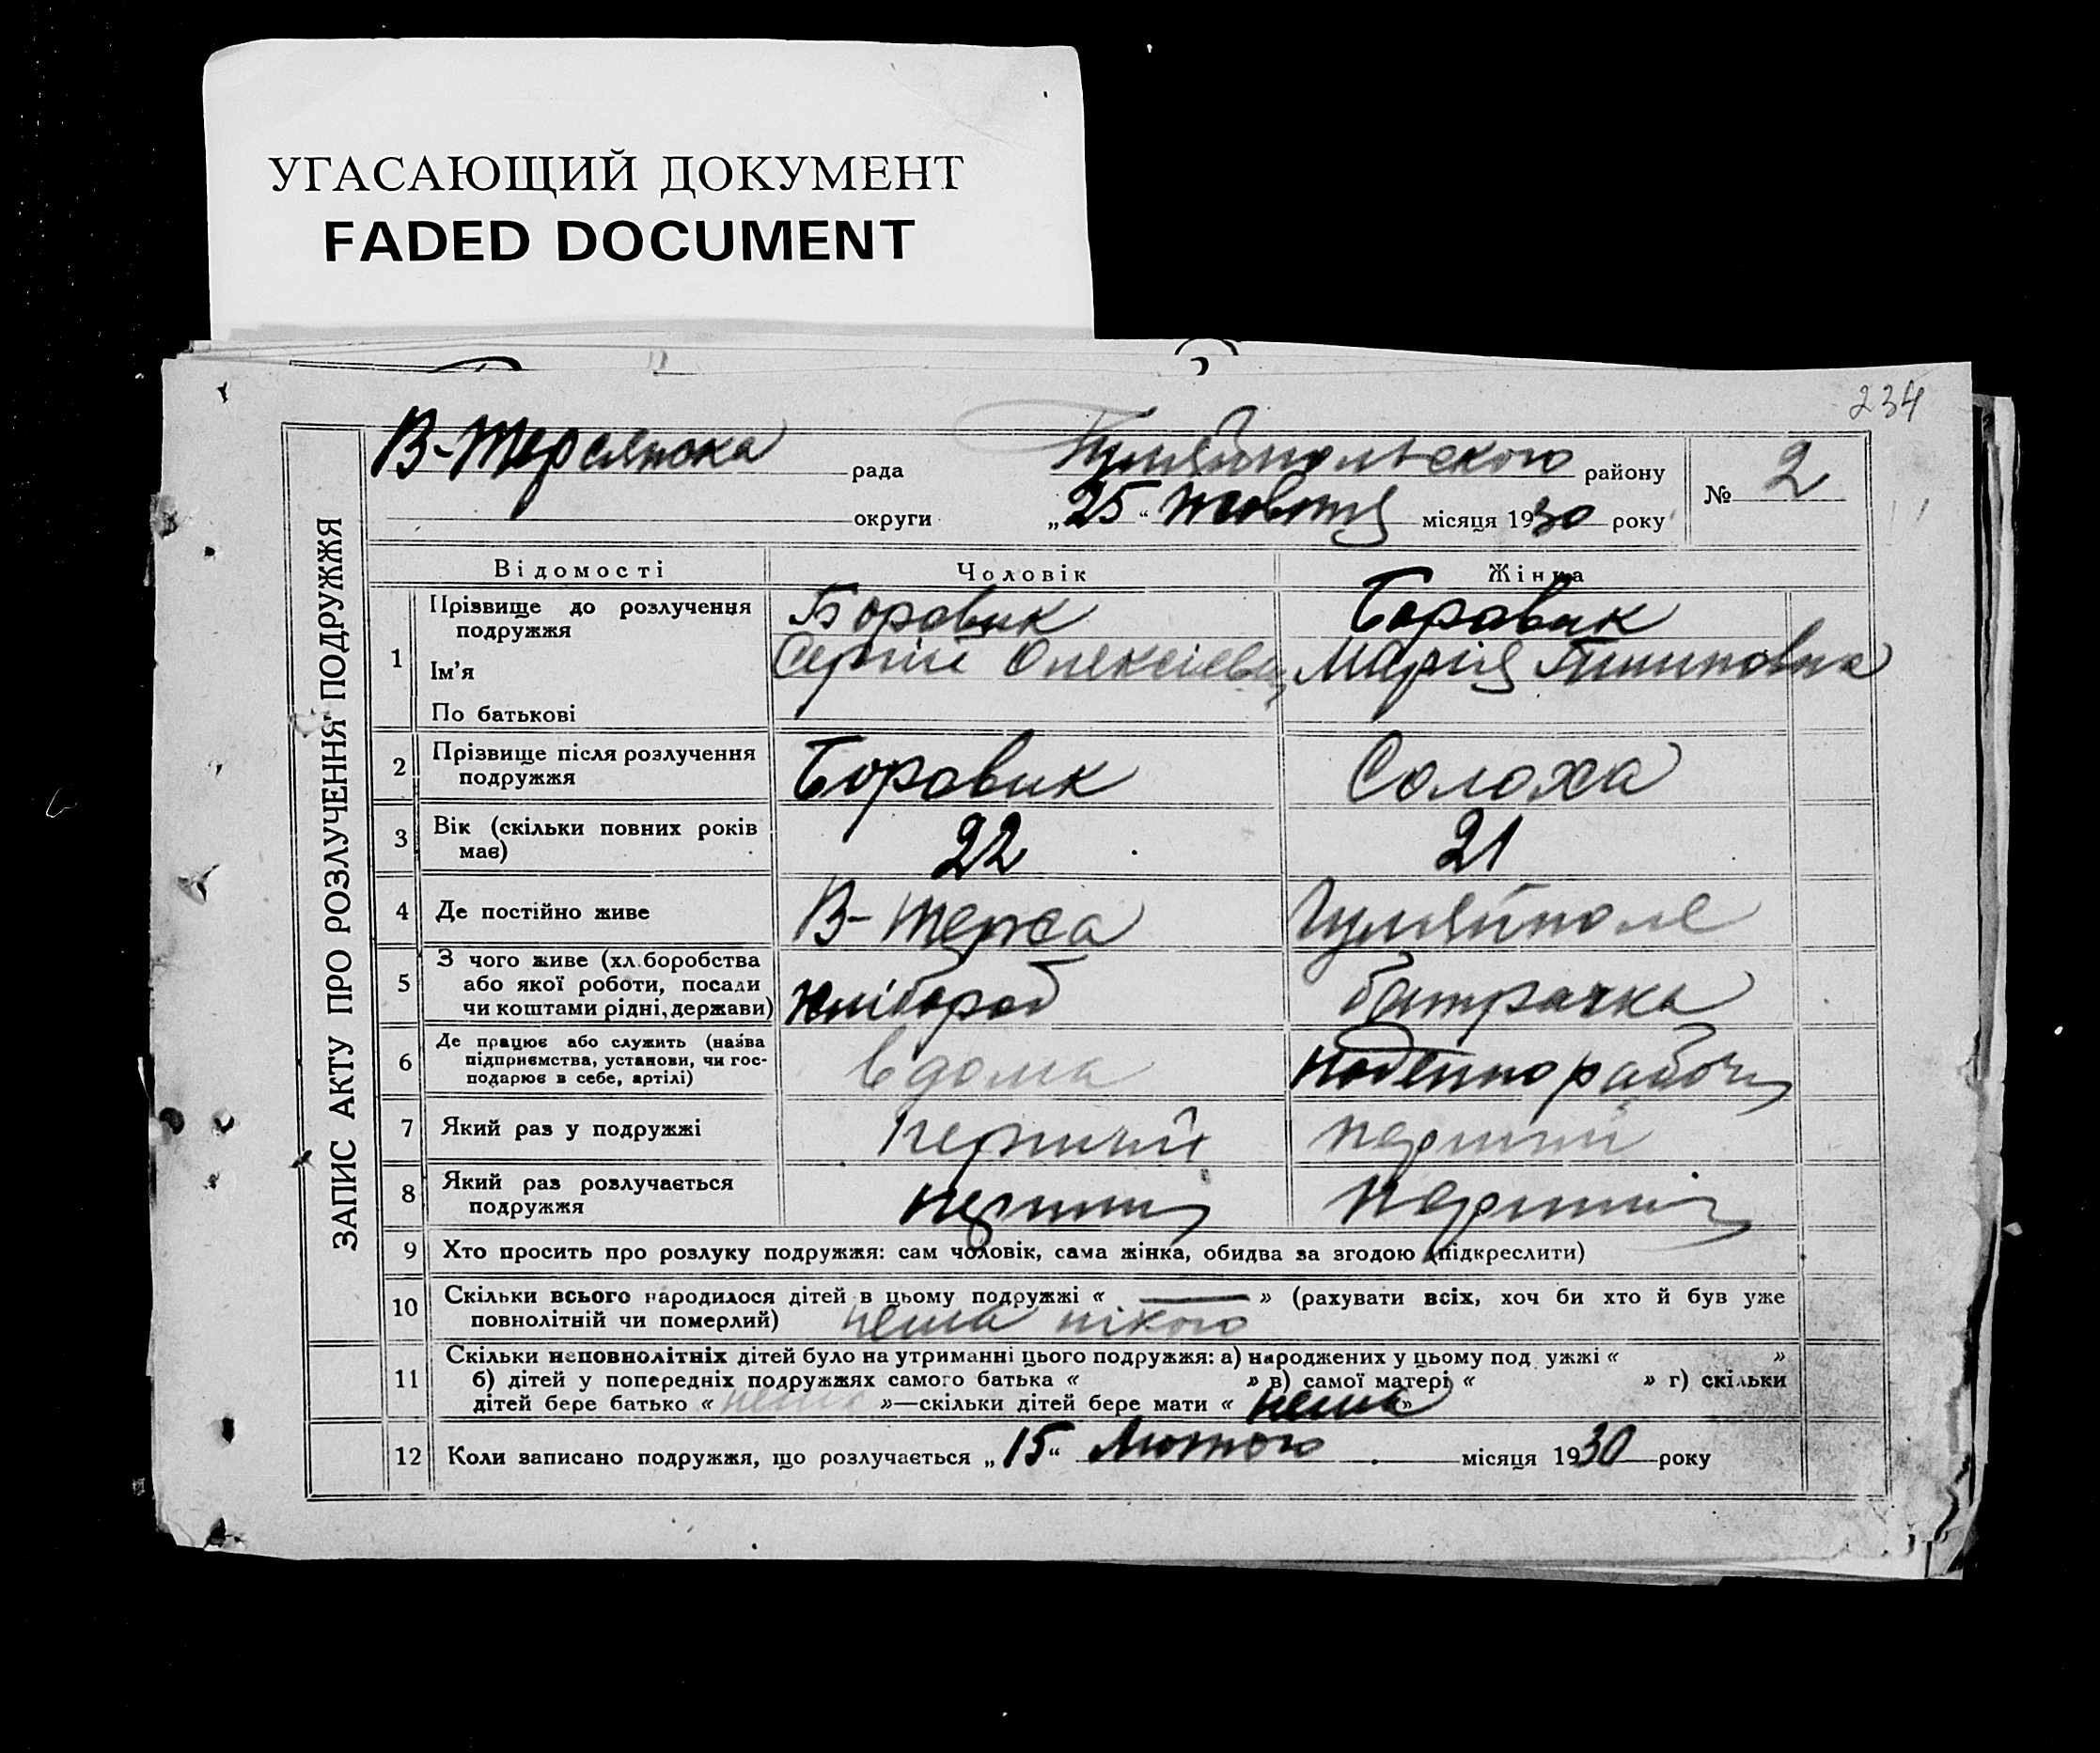 УГАСАЮЩИЙ ДОКУМЕНТ
FADED DOCUMENT
234
В-Терсянска рада Гуляйпольского району № 2
округи „25“ жовтня місяця 1930 року
ЗАПИС АКТУ ПРО РОЗЛУЧЕННЯ ПОДРУЖЖЯ
Відомості Чоловік Жінка
1 Прізвище до розлучення подружжя Боровик Боровик
Ім'я Сергій Олексієвич Марія
По батькові
2 Прізвище після розлучення подружжя Боровик Солоха
3 Вік (скільки повних років має) 22 21
4 Де постійно живе В-Терса Гуляйполе
5 З чого живе (хл.боробства або якої роботи, посади чи коштами рідні, держави) хлібороб батрачка
6 Де працює або служить (назва підприємства, установи, чи госпоdарює в себе, артілі) вдома поденно
7 Який раз у подружжі перший перший
8 Який раз розлучається подружжя перший перший
9 Хто просить про розлуку подружжя: сам чоловік, сама жінка, обидва за згодою (підкреслити)
10 Скільки всього народилося дітей в цьому подружжі « — » (рахувати всіх, хоч би хто й був уже
повнолітній чи померлий) нема нікого
11 Скільки неповнолітніх дітей було на утриманні цього подружжя: а) народжених у цьому подружжі « »
б) дітей у попередніх подружжях самого батька « » в) самої матері « » г) скільки
дітей бере батько « нема »—скільки дітей бере мати « нема »
12 Коли записано подружжя, що розлучається „15“ Лютого місяця 1930 року